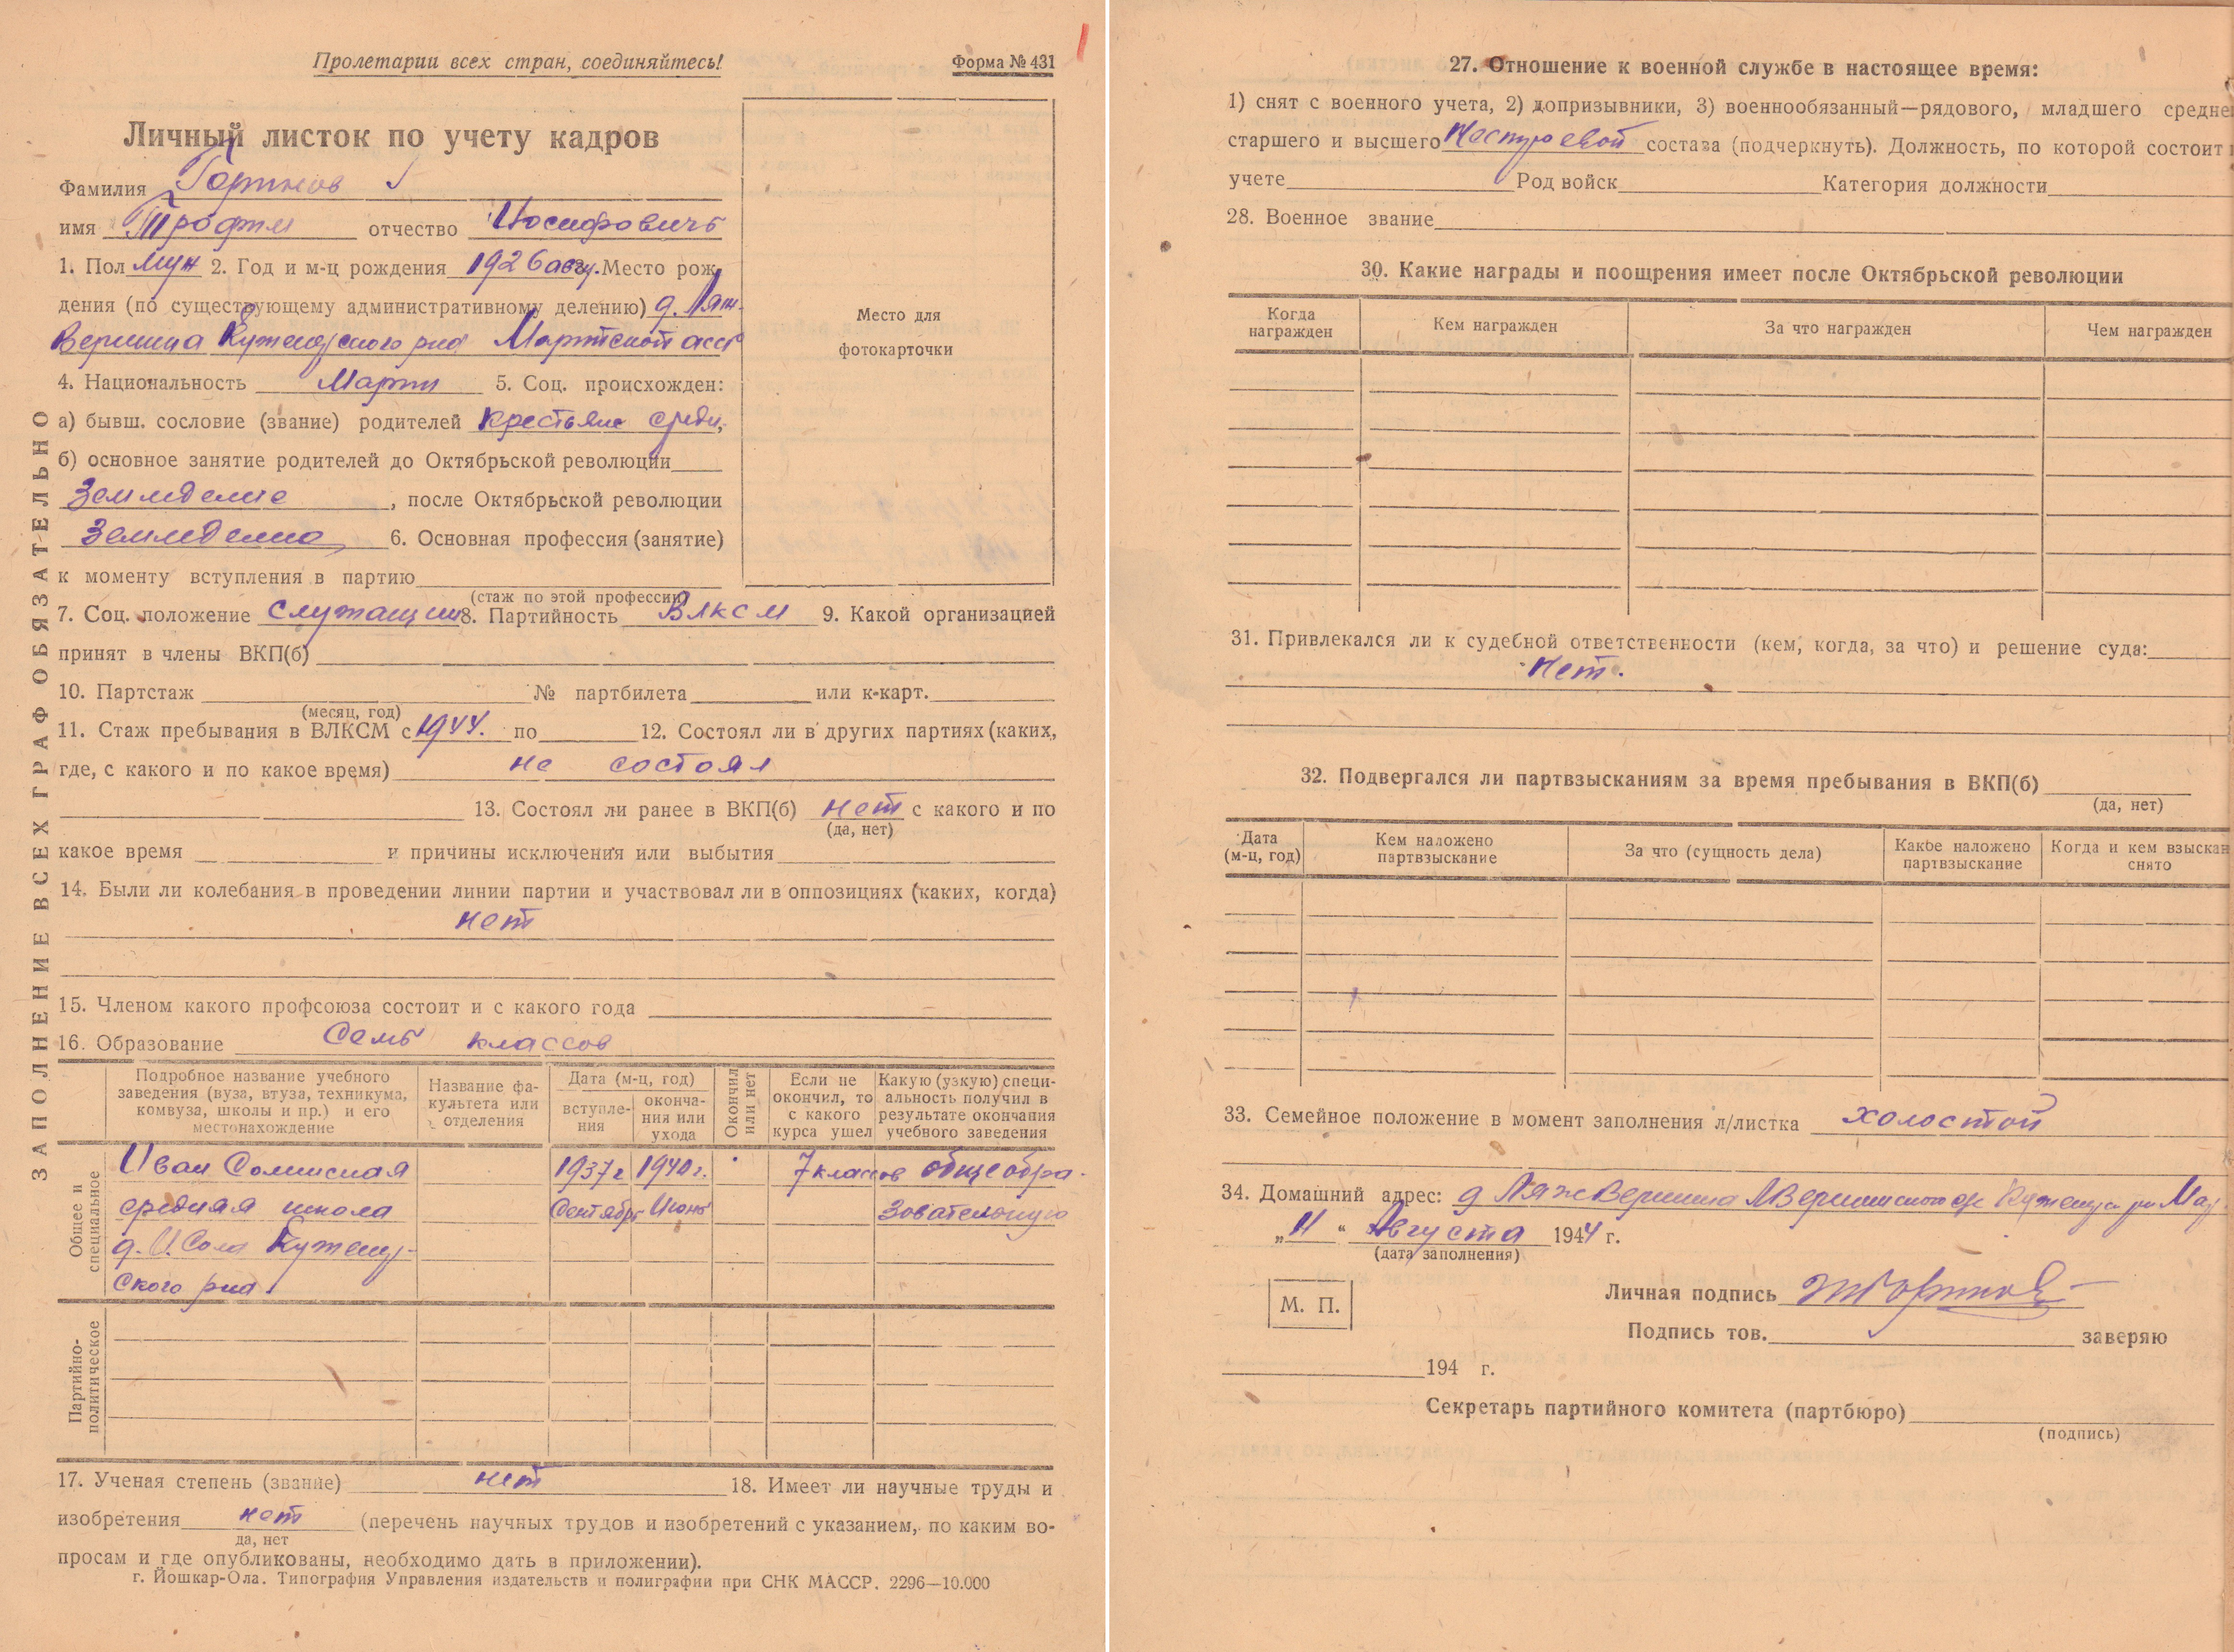 Пролетарии всех стран, соединяйтесь!
Форма № 431
Личный листок по учету кадров
Фамилия
имя Трофим отчество Иосифовичь
1. Пол муж 2. Год и м-ц рождения 1926 авгу. Место рож-
дения (по существующему административному делению) д. Ляж-
Вершина Куженерского рна Марийской асср
4. Национальность Марий 5. Соц. происхожден:
а) бывш. сословие (звание) родителей Крестьяне средн,
б) основное занятие родителей до Октябрьской революции
Земледелие, после Октябрьской революции
Земледелие 6. Основная профессия (занятие)
к моменту вступления в партию
(стаж по этой профессии)
7. Соц. положение служащий 8. Партийность Влксм 9. Какой организацией
принят в члены ВКП(б)
10. Партстаж № партбилета или к-карт.
(месяц, год)
11. Стаж пребывания в ВЛКСМ с 1944. по 12. Состоял ли в других партиях (каких,
где, с какого и по какое время) не состоял
13. Состоял ли ранее в ВКП(б) нет с какого и по
(да, нет)
какое время и причины исключения или выбытия
14. Были ли колебания в проведении линии партии и участвовал ли в оппозициях (каких, когда)
нет
15. Членом какого профсоюза состоит и с какого года
16. Образование Семь классов
Подробное название учебного заведения (вуза, втуза, техникума, комвуза, школы и пр.) и его местонахождение
Название фа-культета или отделения
Дата (м-ц, год)
вступле-ния
оконча-ния или ухода
Окончил или нет
Если не окончил, то с какого курса ушел
Какую (узкую) специ-альность получил в результате окончания учебного заведения
Общее и специальное
Иван Солинская 1937 г 1940 г. 7 классов общеобра-
средняя школа Сентябрь Июнь зовательную
д. И. Сола Куженер-
ского рна
Партийно-политическое
17. Ученая степень (звание) нет 18. Имеет ли научные труды и
изобретения нет (перечень научных трудов и изобретений с указанием, по каким во-
да, нет
просам и где опубликованы, необходимо дать в приложении).
г. Йошкар-Ола. Типография Управления издательств и полиграфии при СНК МАССР. 2296—10.000
ЗАПОЛНЕНИЕ ВСЕХ ГРАФ ОБЯЗАТЕЛЬНО
27. Отношение к военной службе в настоящее время:
1) снят с военного учета, 2) допризывники, 3) военнообязанный—рядового, младшего средне
старшего и высшего Нестроевой состава (подчеркнуть). Должность, по которой состоит
учете Род войск Категория должности
28. Военное звание
30. Какие награды и поощрения имеет после Октябрьской революции
Когда награжден
Кем награжден
За что награжден
Чем награжден
31. Привлекался ли к судебной ответственности (кем, когда, за что) и решение суда:
Нет.
32. Подвергался ли партвзысканиям за время пребывания в ВКП(б)
(да, нет)
Дата (м-ц, год)
Кем наложено партвзыскание
За что (сущность дела)
Какое наложено партвзыскание
Когда и кем взыскан снято
33. Семейное положение в момент заполнения л/листка холостой
34. Домашний адрес: д ЛяжВершина
„11“ Августа 1944 г.
(дата заполнения)
М. П.
Личная подпись
Подпись тов. заверяю
194 г.
Секретарь партийного комитета (партбюро)
(подпись)